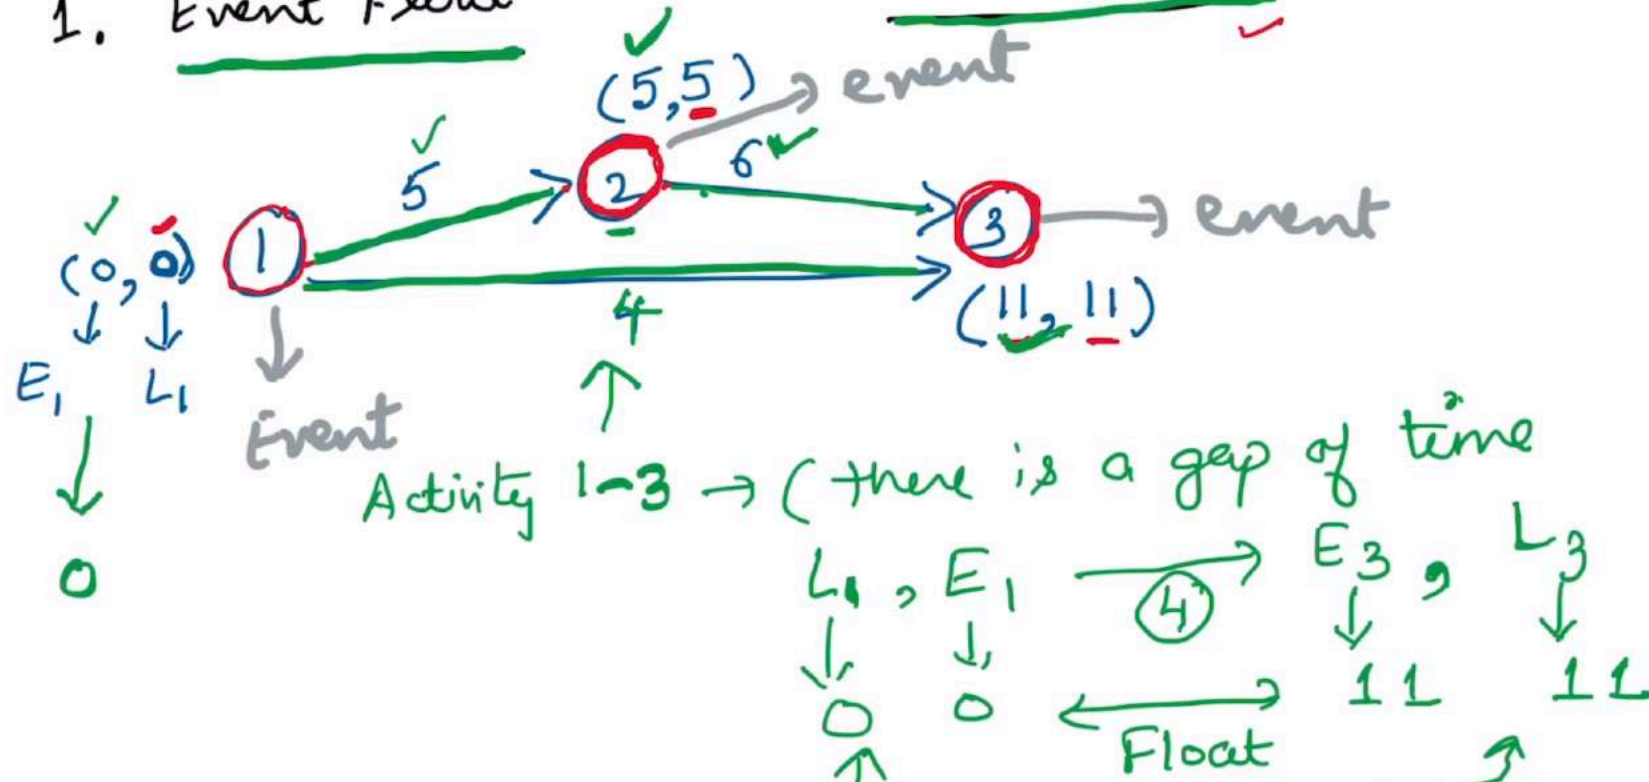 1. Event Float
(5,5) → event
5
6
2
(0, 0)
1
3 → event
4
(11, 11)
E1 L1
Event
Activity 1-3 → (there is a gap of time
0
L1, E1 → E3, L3
4
0 0 ↔ 11 11
Float